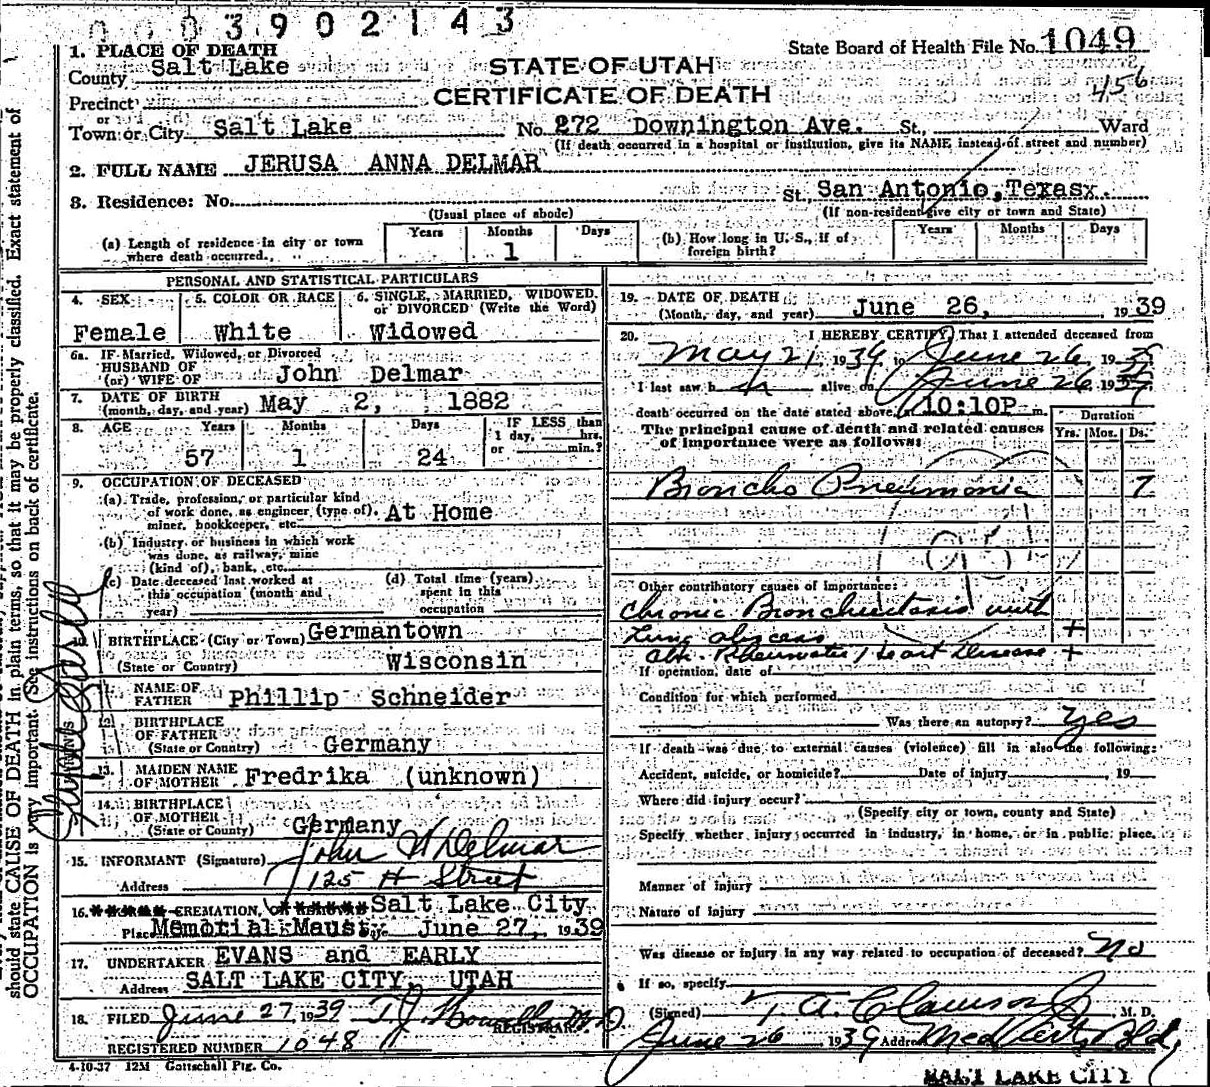 0003902143
1. PLACE OF DEATH
State Board of Health File No. 1049
County Salt Lake
STATE OF UTAH
456
Precinct
CERTIFICATE OF DEATH
or
Town or City Salt Lake No. 272 Downington Ave. St., Ward
(If death occurred in a hospital or institution, give its NAME instead of street and number)
2. FULL NAME JERUSA ANNA DELMAR
3. Residence: No. St., San Antonio, Texasx.
(Usual place of abode) (If non-resident give city or town and State)
(a) Length of residence in city or town where death occurred. Years Months 1 Days
(b) How long in U. S., if of foreign birth? Years Months Days
PERSONAL AND STATISTICAL PARTICULARS
4. SEX 5. COLOR OR RACE 6. SINGLE, MARRIED, WIDOWED,
or DIVORCED (Write the Word)
Female White Widowed
6a. IF Married, Widowed, or Divorced
HUSBAND OF
(or) WIFE OF John Delmar
7. DATE OF BIRTH
(month, day, and year) May 2, 1882
8. AGE Years Months Days IF LESS than
1 day, hrs.
or min.?
57 1 24
9. OCCUPATION OF DECEASED
(a) Trade, profession, or particular kind
of work done, as engineer (type of), At Home
miner, bookkeeper, etc.
(b) Industry or business in which work
was done, as railway, mine
(kind of), bank, etc.
(c) Date deceased last worked at
this occupation (month and
year)
(d) Total time (years)
spent in this
occupation
BIRTHPLACE (City or Town) Germantown
(State or Country) Wisconsin
NAME OF
FATHER Phillip Schneider
12. BIRTHPLACE
OF FATHER
(State or Country) Germany
13. MAIDEN NAME
OF MOTHER Fredrika (unknown)
14. BIRTHPLACE
OF MOTHER
(State or County) Germany
15. INFORMANT (Signature) John H Delmar
Address 125 H Street
16. CREMATION, Salt Lake City
Place Memorial Maus. June 27, 1939
17. UNDERTAKER EVANS and EARLY
Address SALT LAKE CITY, UTAH
18. FILED June 27 1939
REGISTRAR
REGISTERED NUMBER 1048
4-10-37 12M Gottschall Ptg. Co.
19. DATE OF DEATH
(Month, day, and year) June 26, 1939
20. I HEREBY CERTIFY, That I attended deceased from
May 21 1939 to June 26, 1939
I last saw h er alive on June 26 1939
death occurred on the date stated above, 10:10P m.
The principal cause of death and related causes
of importance were as follows:
Duration
Yrs. Mos. Ds.
Broncho Pneumonia 7
Other contributory causes of importance:
Chronic Bronchiectasis with
Lung abscess +
Rheumatic Heart Disease +
If operation, date of
Condition for which performed
Was there an autopsy? Yes
If death was due to external causes (violence) fill in also the following:
Accident, suicide, or homicide? Date of injury , 19
Where did injury occur?
(Specify city or town, county and State)
Specify whether injury occurred in industry, in home, or in public place.
Manner of injury
Nature of injury
Was disease or injury in any way related to occupation of deceased? No
If so, specify
(Signed) T. A. Clawson Jr M. D.
June 26 1939 Address Med Arts Bld,
SALT LAKE CITY
should state CAUSE OF DEATH in plain terms, so that it may be properly classified. Exact statement of
OCCUPATION is very important. (See instructions on back of certificate.